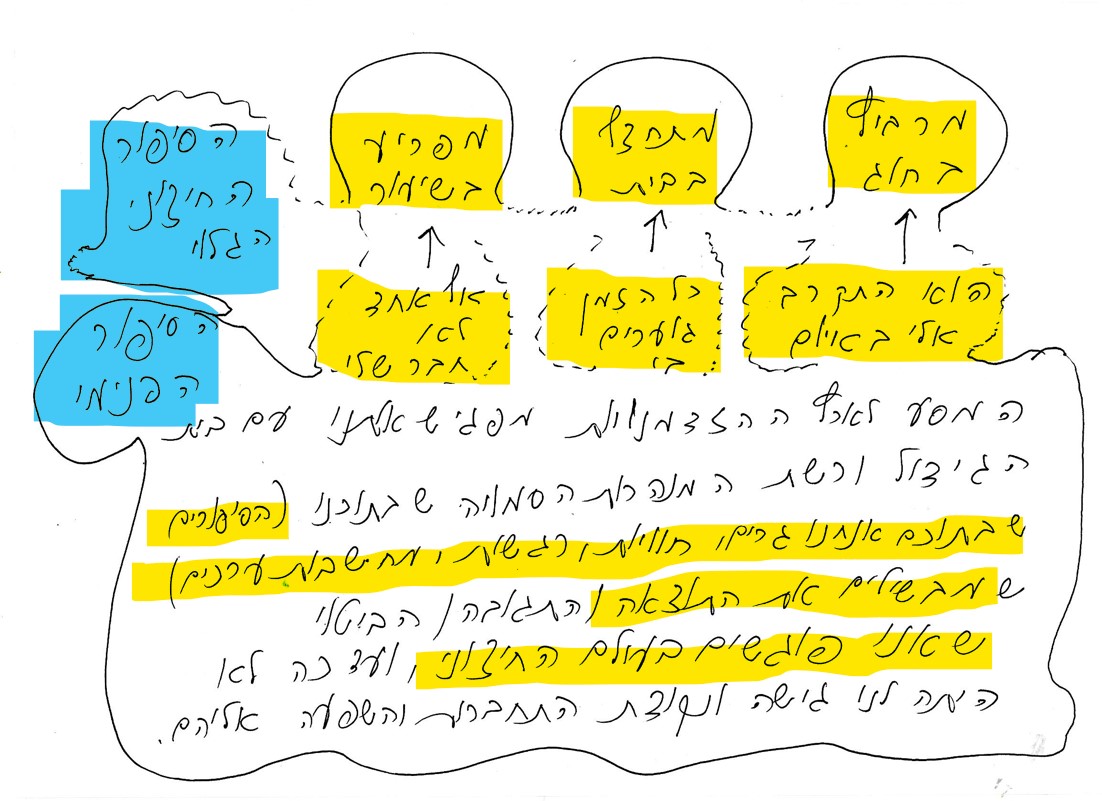 מרביץ
בחוג
מתחצף
בבית
מפריע
בשיעור
הסיפור
החיצוני
הגלוי
הוא התקרב
אלי באיום
כל הזמן
גוערים
בי
אף אחד
לא
חבר שלי
הסיפור
הפנימי
המסע לאורך ההזדמנויות מפגיש אותנו עם בית
הגידול ורשת המנהרות הסמויה שבתוכנו (הסיפורים
שבתוכם אנחנו גרים, חוויות, רגשות, מחשבות ערכים)
שמבשילים את התוצאה (התגובה) הביטוי
שאנו פוגשים בעולם החיצוני, ועד כה לא
היתה לנו גישה ונקודת התחברות והשפעה אליהם.